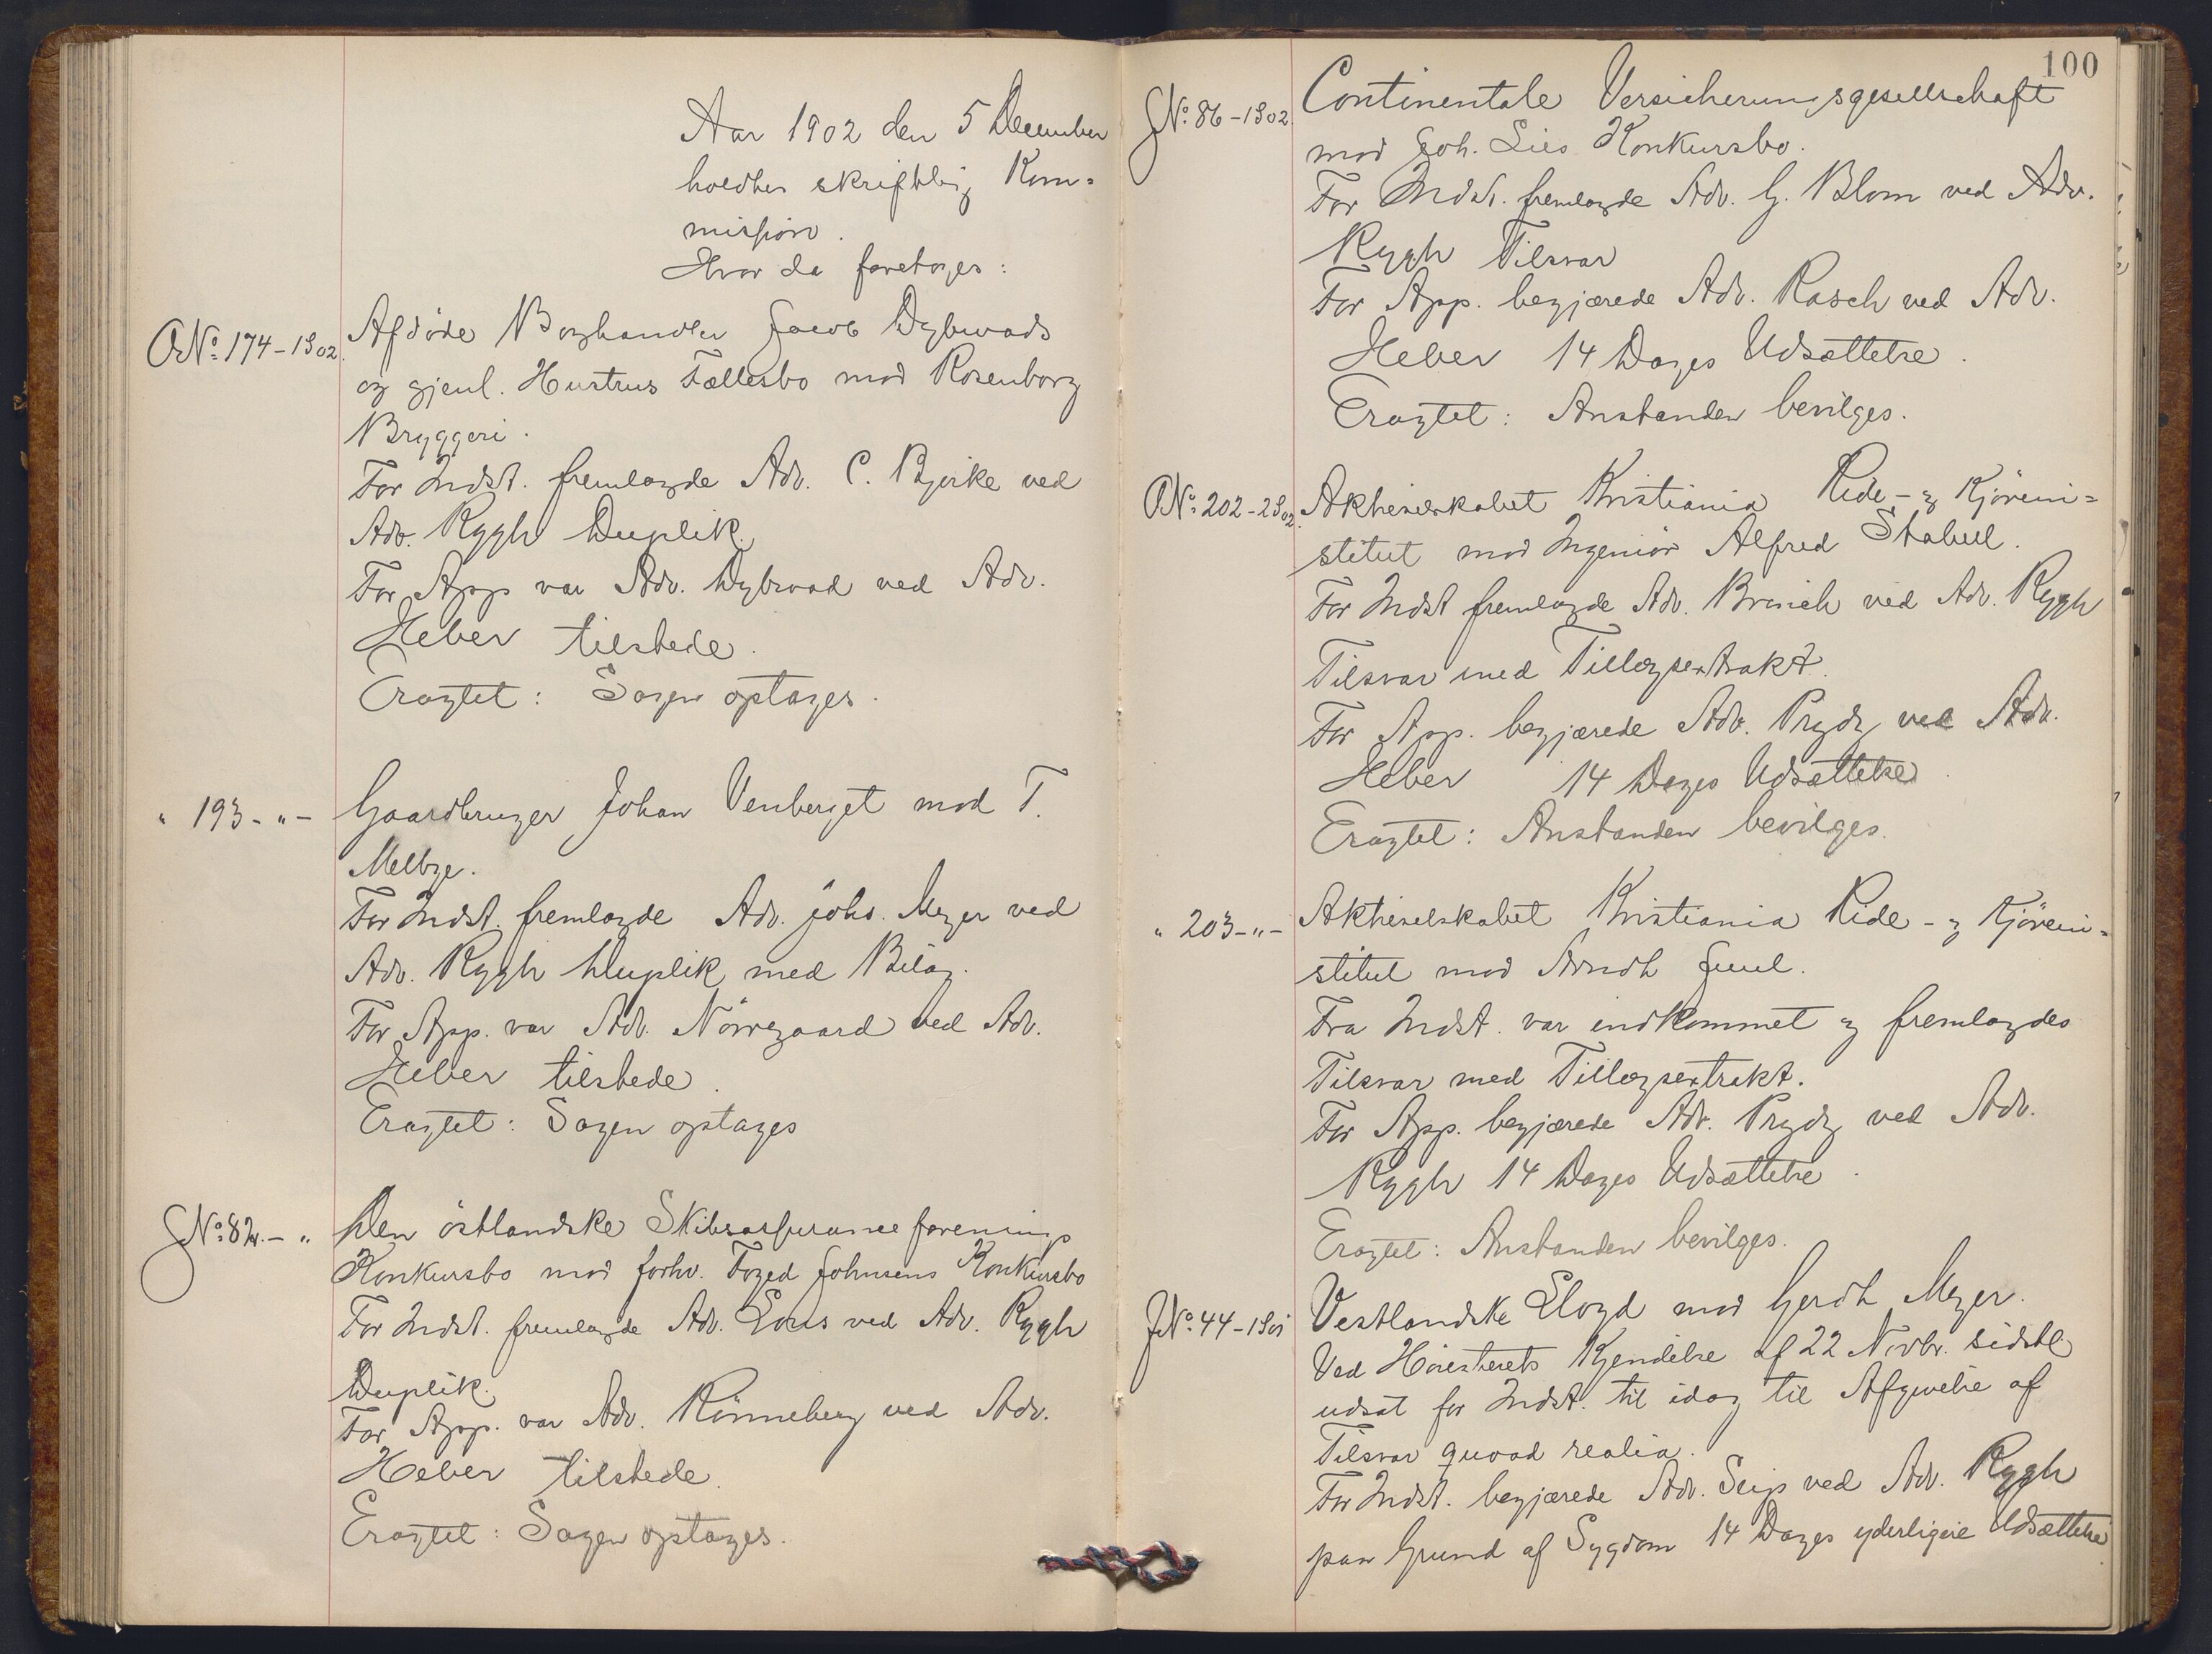 Aar 1902 den 5 December
holdtes skriftlig Kom=
mission.
Hvor da foretoges:
O No 174-1902. Afdöde Boghandler Jacob Dybwads
og gjenl. Hustrus Fællesbo mod Rosenborg
Bryggeri.
For Indst. fremlagde Adv. C. Bjerke ved
Adv. Rygh Duplik.
For App var Adv. Dybwad ved Adv.
Heber tilstede.
Eragtet: Sagen optages.
" 193-"- Gaardbruger Johan Venberget mod T.
Melbye.
For Indst. fremlagde Adv. Johs. Meyer ved
Adv. Rygh Duplik med Bilag.
For App. var Adv. Nörregaard ved Adv.
Heber tilstede.
Eragtet: Sagen optages
J No 82.-" Den östlandske Skibsassuranceforenings
Konkursbo mod forhv. Foged Johnsens Konkursbo
For Indst. fremlagde Adv. Lous ved Adv. Rygh
Duplik.
For App. var Adv. Rönneberg ved Adv.
Heber tilstede.
Eragtet: Sagen optages.
100
J No 86-1902. Continentale Versicherungsgesellschaft
mod Joh. Lies Konkursbo.
For Indst. fremlagde Adv. G. Blom ved Adv.
Rygh Tilsvar
For App. begjærede Adv. Rasch ved Adv.
Heber 14 Dages Udsættelse.
Eragtet: Anstanden bevilges.
O No 202-1902. Aktieselskabet Kristiania Ride- og Kjörein=
stitut mod Ingeniör Alfred Stabell.
For Indst fremlagde Adv. Brinch ved Adv. Rygh
Tilsvar med Tillægsextrakt.
For App. begjærede Adv. Prydz ved Adv.
Heber 14 Dages Udsættelse.
Eragtet: Anstanden bevilges.
" 203-"- Aktieselskabet Kristiania Ride- og Kjörein=
stitut mod Arndt Juul.
Fra Indst. var indkommet og fremlagdes
Tilsvar med Tillægsextrakt.
For App. begjærede Adv. Prydz ved Adv.
Rygh 14 Dages Udsættelse.
Eragtet: Anstanden bevilges.
J No 44-1901 Vestlandske Lloyd mod Gerdt Meyer.
Ved Höiesterets Kjendelse af 22 Novbr. sidstl.
udsat for Indst. til idag til Afgivelse af
Tilsvar quoad realia.
For Indst. begjærede Adv. Seip ved Adv. Rygh
paa Grund af Sygdom 14 Dages yderligere Udsættelse.